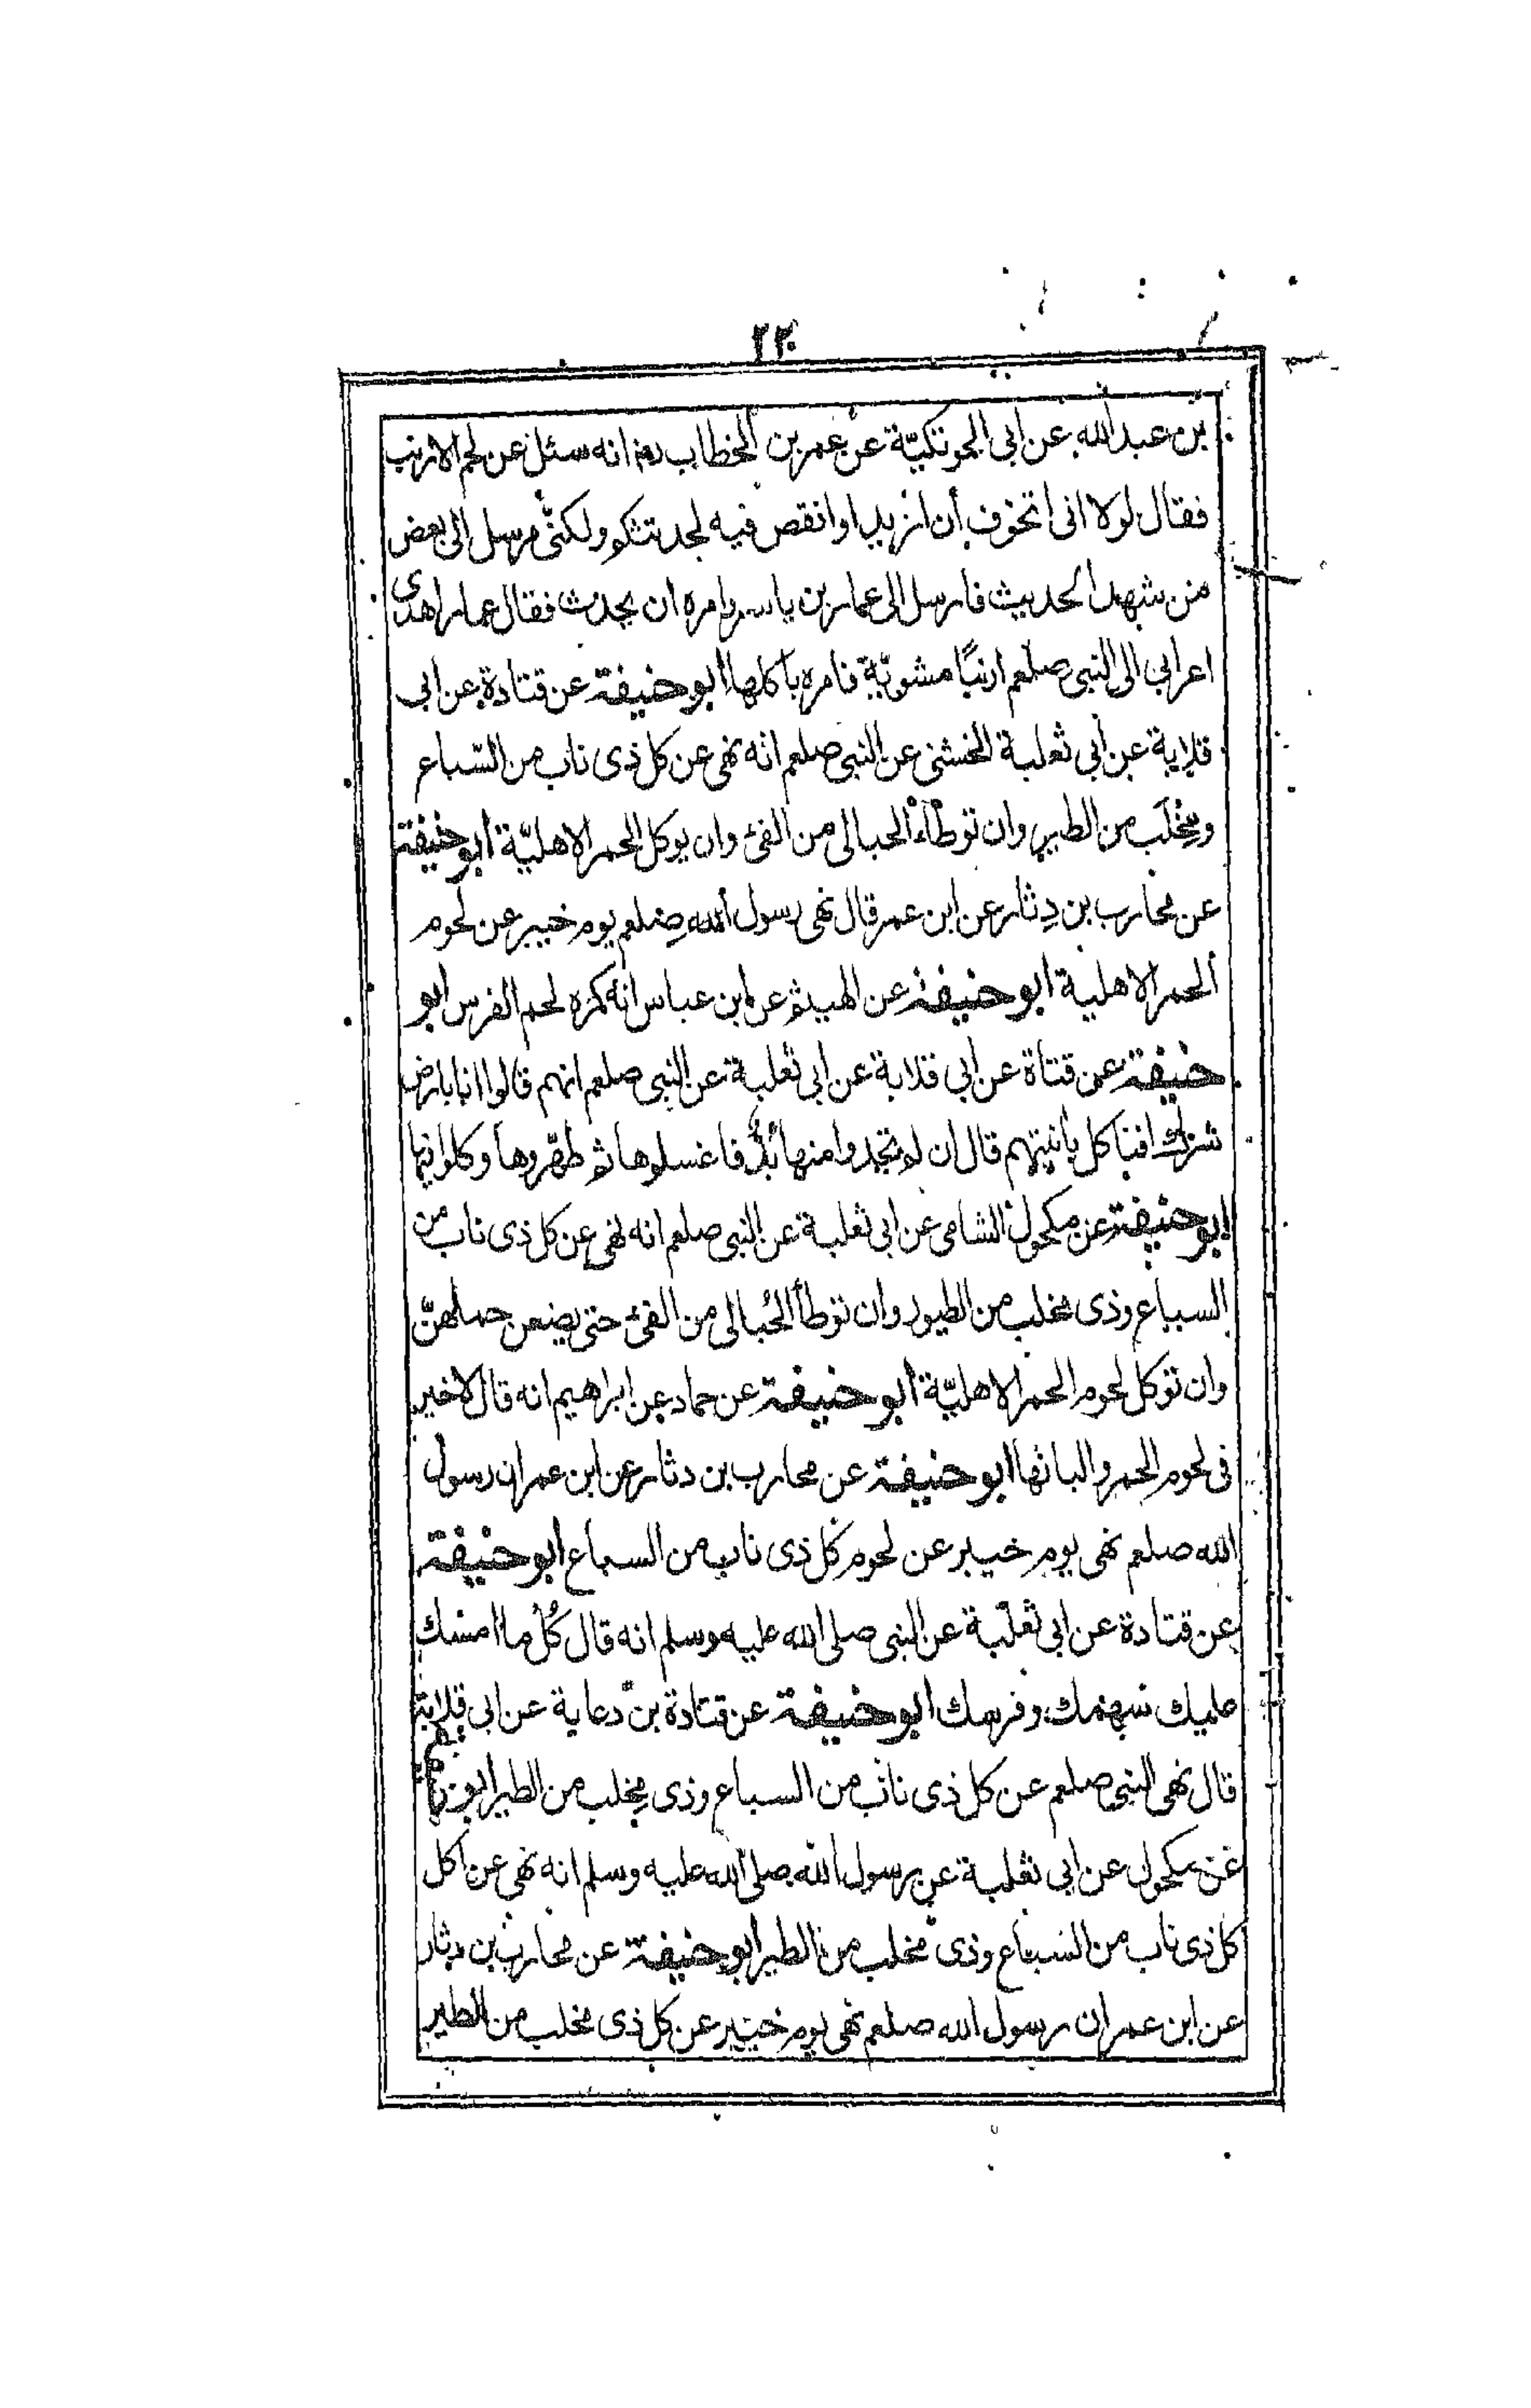 ٢٢٠
بن عبد الله عن ابى الجوتكيّة عن عمر بن الخطاب رض انه سئل عن لحم الارنب
فقال لولا انى اتخوف أن ازيد او انقص فيه لحدثتكم ولكنّى مرسل الى بعض
من شهد الحديث فارسل الى عمار بن ياسر وامره ان يحدث فقال عمار اهدى
اعرابي الى النبى صلعم ارنبًا مشويّة فامره بأكلها أبو حنيفة عن قتادة عن ابى
قلابة عن ابى ثعلبة الخشنى عن النبى صلعم انه نهى عن كل ذى ناب من السّباع
ومِخلَب من الطير وان توطأء الحبالى من الفئ وان يوكل الحمر الاهليّة أبو حنيفة
عن محارب بن دِثار عن ابن عمر قال نهى رسول الله صلعم يوم خيبر عن لحوم
ألحمر الاهلية أبو حنيفة عن الهيثم عن ابن عباس انه كره لحم الفرس ابو
حنيفة عن قتاة عن ابى قلابة عن ابى ثعلبة عن النبى صلعم انهم قالوا انا بارض
شرك افنا كل بأنيتهم قال ان لم تجدوا منها بُدًّ فاغسلوها ثم طهّروها وكلوا فيها
ابو حنيفة عن مكحول الشامى عن ابى ثعلبة عن النبى صلعم انه نهى عن كل ذى ناب من
السباع وذى مخلب من الطيور وان توطأ الحُبالى من الفئ حتى يضعن حملهنّ
وان توكل لحوم الحمر الاهليّة أبو حنيفة عن حماد عن ابراهيم انه قال لاخير
فى لحوم الحمر والبانها ابو حنيفة عن محارب بن دثار عن ابن عمر ان رسول
الله صلعم نهى يوم خيبر عن لحوم كل ذى ناب من السباع أبو حنيفة
عن قتادة عن ابى ثعلبة عن النبى صلى الله عليه وسلم انه قال كُل ما امسك
عليك سهمك وفرسك ابو حنيفة عن قتادة بن دعاية عن ابى قلابة
قال نهى النبى صلعم عن كل ذى ناب من السباع وذى مِخلب من الطير ابو
عن مكحول عن ابى ثعلبة عن رسول الله صلى الله عليه وسلم انه نهى عن اكل
كل ذى ناب من السباع وذى مخلب من الطير ابو حنيفة عن محارب بن دثار
عن ابن عمر ان رسول الله صلعم نهى يوم خيبر عن كل ذى مخلب من الطير